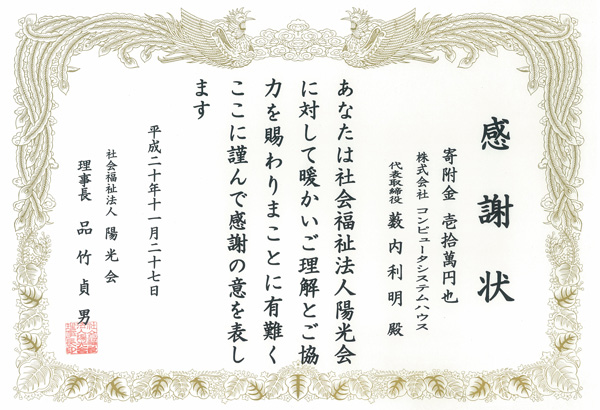 感謝状
寄附金 壱拾萬円也
株式会社 コンピュータシステムハウス
代表取締役 藪内利明 殿
あなたは社会福祉法人陽光会
に対して暖かいご理解とご協
力を賜わりまことに有難く
ここに謹んで感謝の意を表し
ます
平成二十年十一月二十七日
社会福祉法人 陽光会
理事長 品竹貞男